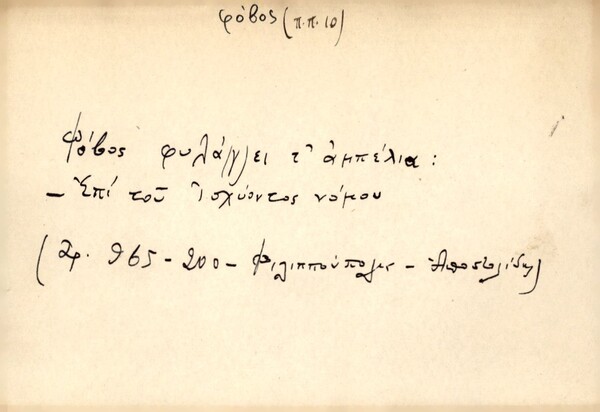 φόβος (π.π. 10)
Φόβος φυλά(γ)ει τ' ἀμπέλια:
– Ἐπί τοῦ ἰσχύοντος νόμου
965 – 200 – Φιλιππούπολις – Ἀποστολίδης)